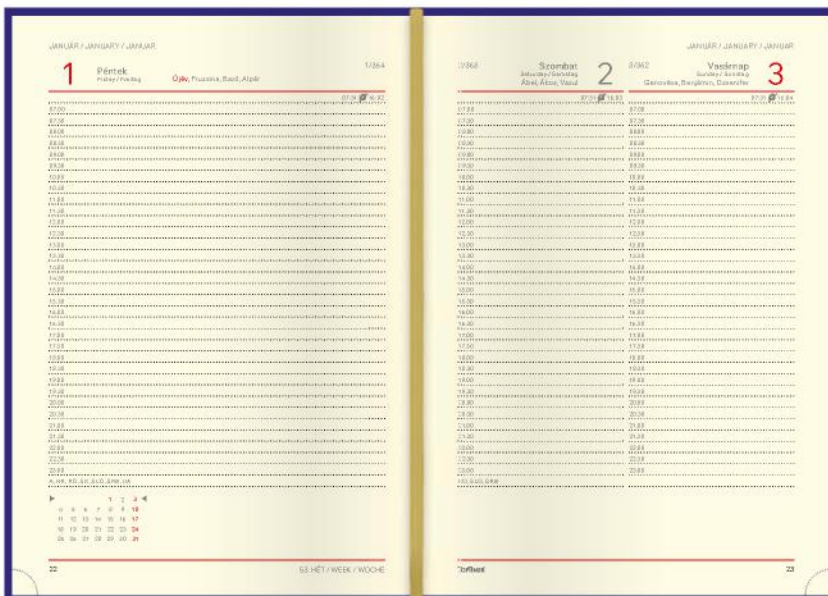 JANUÁR / JANUARY / JANUAR
1
Péntek
Friday / Freitag
Újév, Fruzsina, Bazil, Alpár
1/364
07:31 16:02
07.00
07.30
08.00
08.30
09.00
09.30
10.00
10.30
11.00
11.30
12.00
12.30
13.00
13.30
14.00
14.30
15.00
15.30
16.00
16.30
17.00
17.30
18.00
18.30
19.00
19.30
20.00
20.30
21.00
21.30
22.00
22.30
23.00
1 2 3
4 5 6 7 8 9 10
11 12 13 14 15 16 17
18 19 20 21 22 23 24
25 26 27 28 29 30 31
22
53. HÉT / WEEK / WOCHE
JANUÁR / JANUARY / JANUAR
2/363
Szombat
Saturday / Samstag
Ábel, Ákos, Vazul
2
07:31 16:03
07.00
07.30
08.00
08.30
09.00
09.30
10.00
10.30
11.00
11.30
12.00
12.30
13.00
13.30
14.00
14.30
15.00
15.30
16.00
16.30
17.00
17.30
18.00
18.30
19.00
19.30
20.00
20.30
21.00
21.30
22.00
22.30
23.00
3/362
Vasárnap
Sunday / Sonntag
Genovéva, Benjámin, Dzsenifer
3
07:31 16:04
07.00
07.30
08.00
08.30
09.00
09.30
10.00
10.30
11.00
11.30
12.00
12.30
13.00
13.30
14.00
14.30
15.00
15.30
16.00
16.30
17.00
17.30
18.00
18.30
19.00
19.30
20.00
20.30
21.00
21.30
22.00
22.30
23.00
23